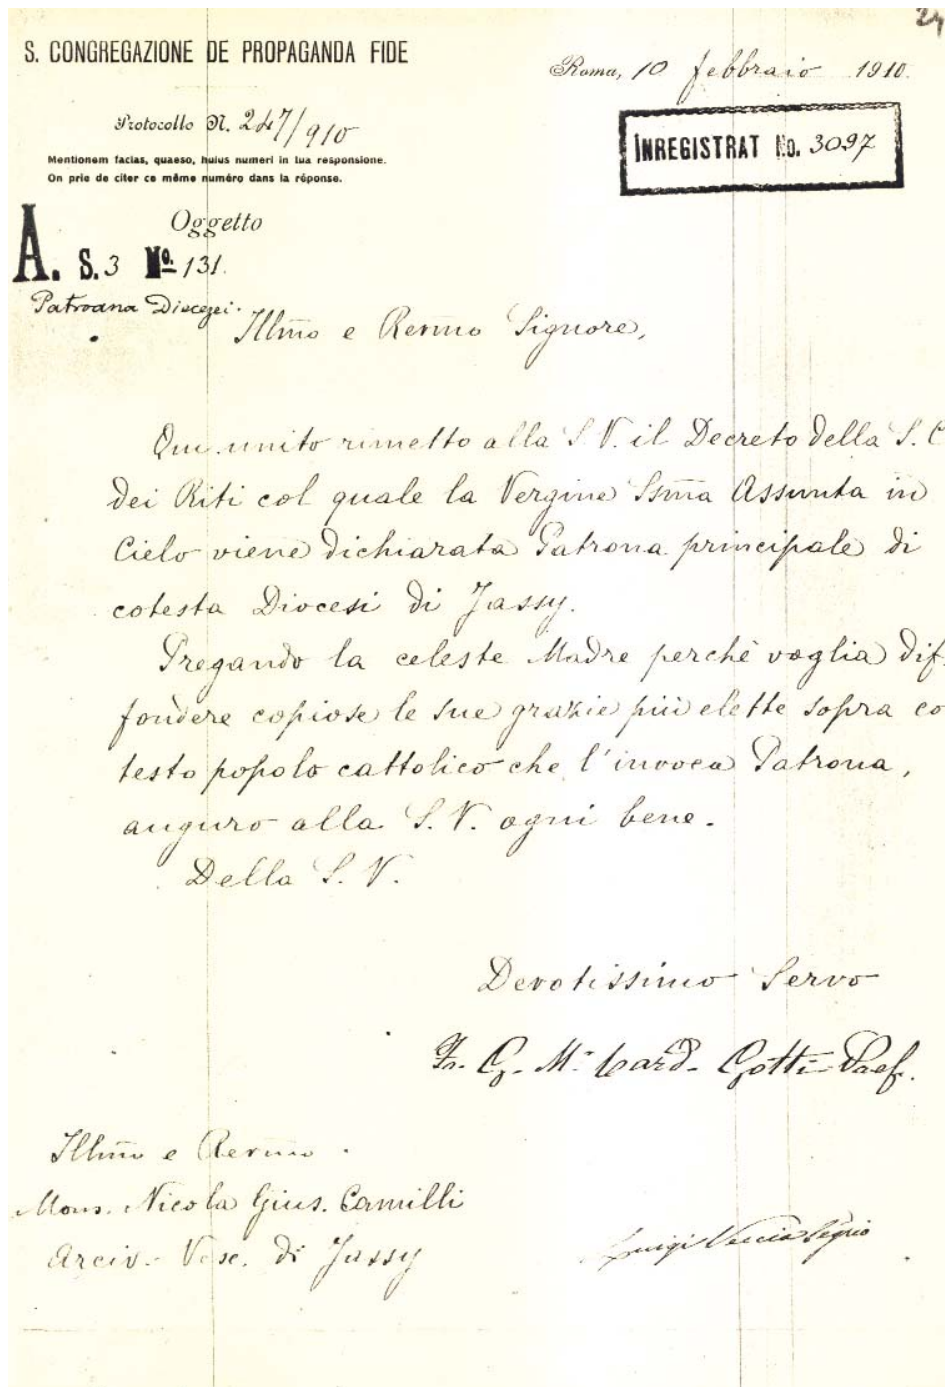 24
S. CONGREGAZIONE DE PROPAGANDA FIDE
Roma, 10 febbraio 1910.
Protocollo N. 247/910
Mentionem facias, quaeso, huius numeri in tua responsione.
On prie de citer ce même numéro dans la réponse.
INREGISTRAT No. 3097
Oggetto
A. S. 3 No. 131.
Patroana Diecezei.
Illm̃o e Reṽmo Signore,
Qui unito rimetto alla S. V. il Decreto della S. C
dei Riti col quale la Vergine Ssm̃a Assunta in
Cielo viene dichiarata Patrona principale di
cotesta Diocesi di Jassy.
Pregando la celeste Madre perchè voglia dif-
fondere copiose le sue grazie più elette sopra co
testo popolo cattolico che l'invoca Patrona,
auguro alla S. V. ogni bene.
Della S. V.
Devotissimo Servo
Fr. G. M. Card. Gotti Praef.
Illm̃o e Reṽmo
Mons. Nicola Gius. Camilli
Arciv. - Vesc. di Jassy
Luigi Veccia Segrio